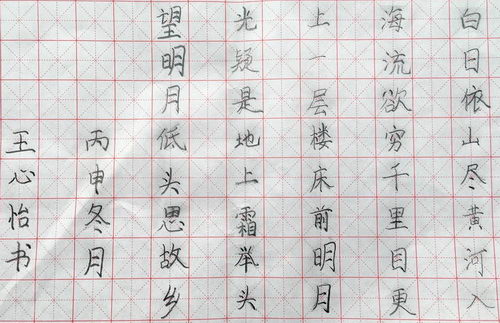 白日依山尽黄河入
海流欲穷千里目更
上一层楼床前明月
光疑是地上霜举头
望明月低头思故乡
丙申冬月
王心怡书